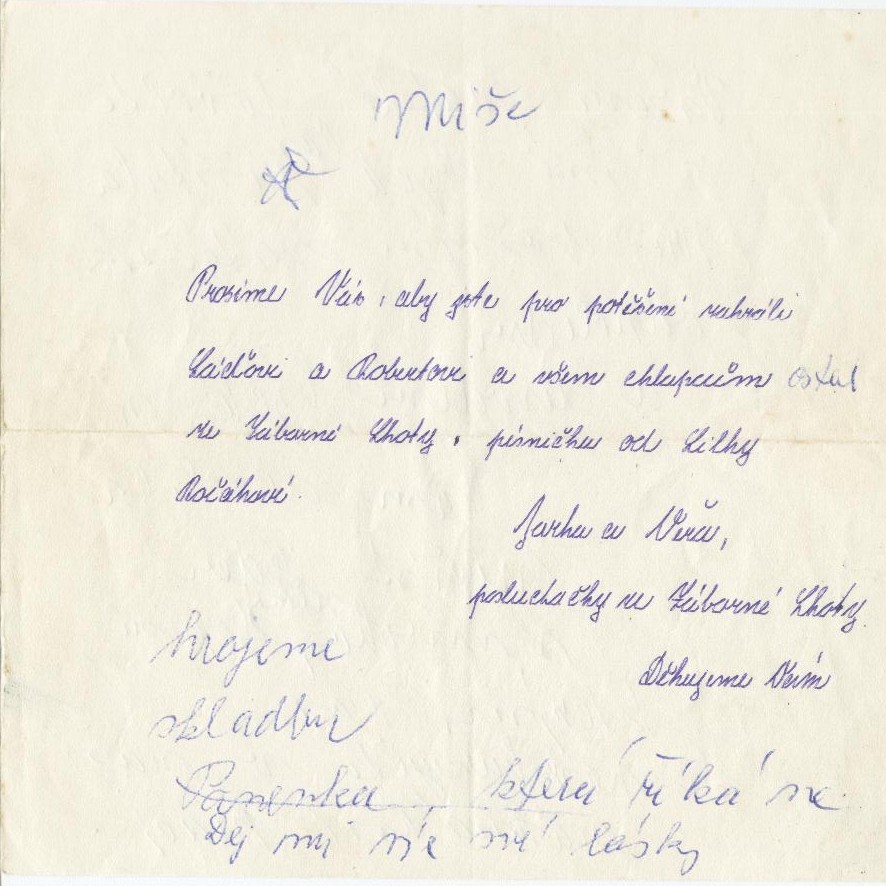 Míše
Prosíme Vás, aby jste pro potěšení zahráli
Láďovi a Robertovi a všem chlapcům ostat
ze Záborné Lhoty, písničku od Lilky
Ročákové.
Jarka a Věra,
posluchačky ze Záborné Lhoty.
Děkujeme Vám
hrajeme
skladbu
Panenka, která říká ne
Dej mi víc své lásky